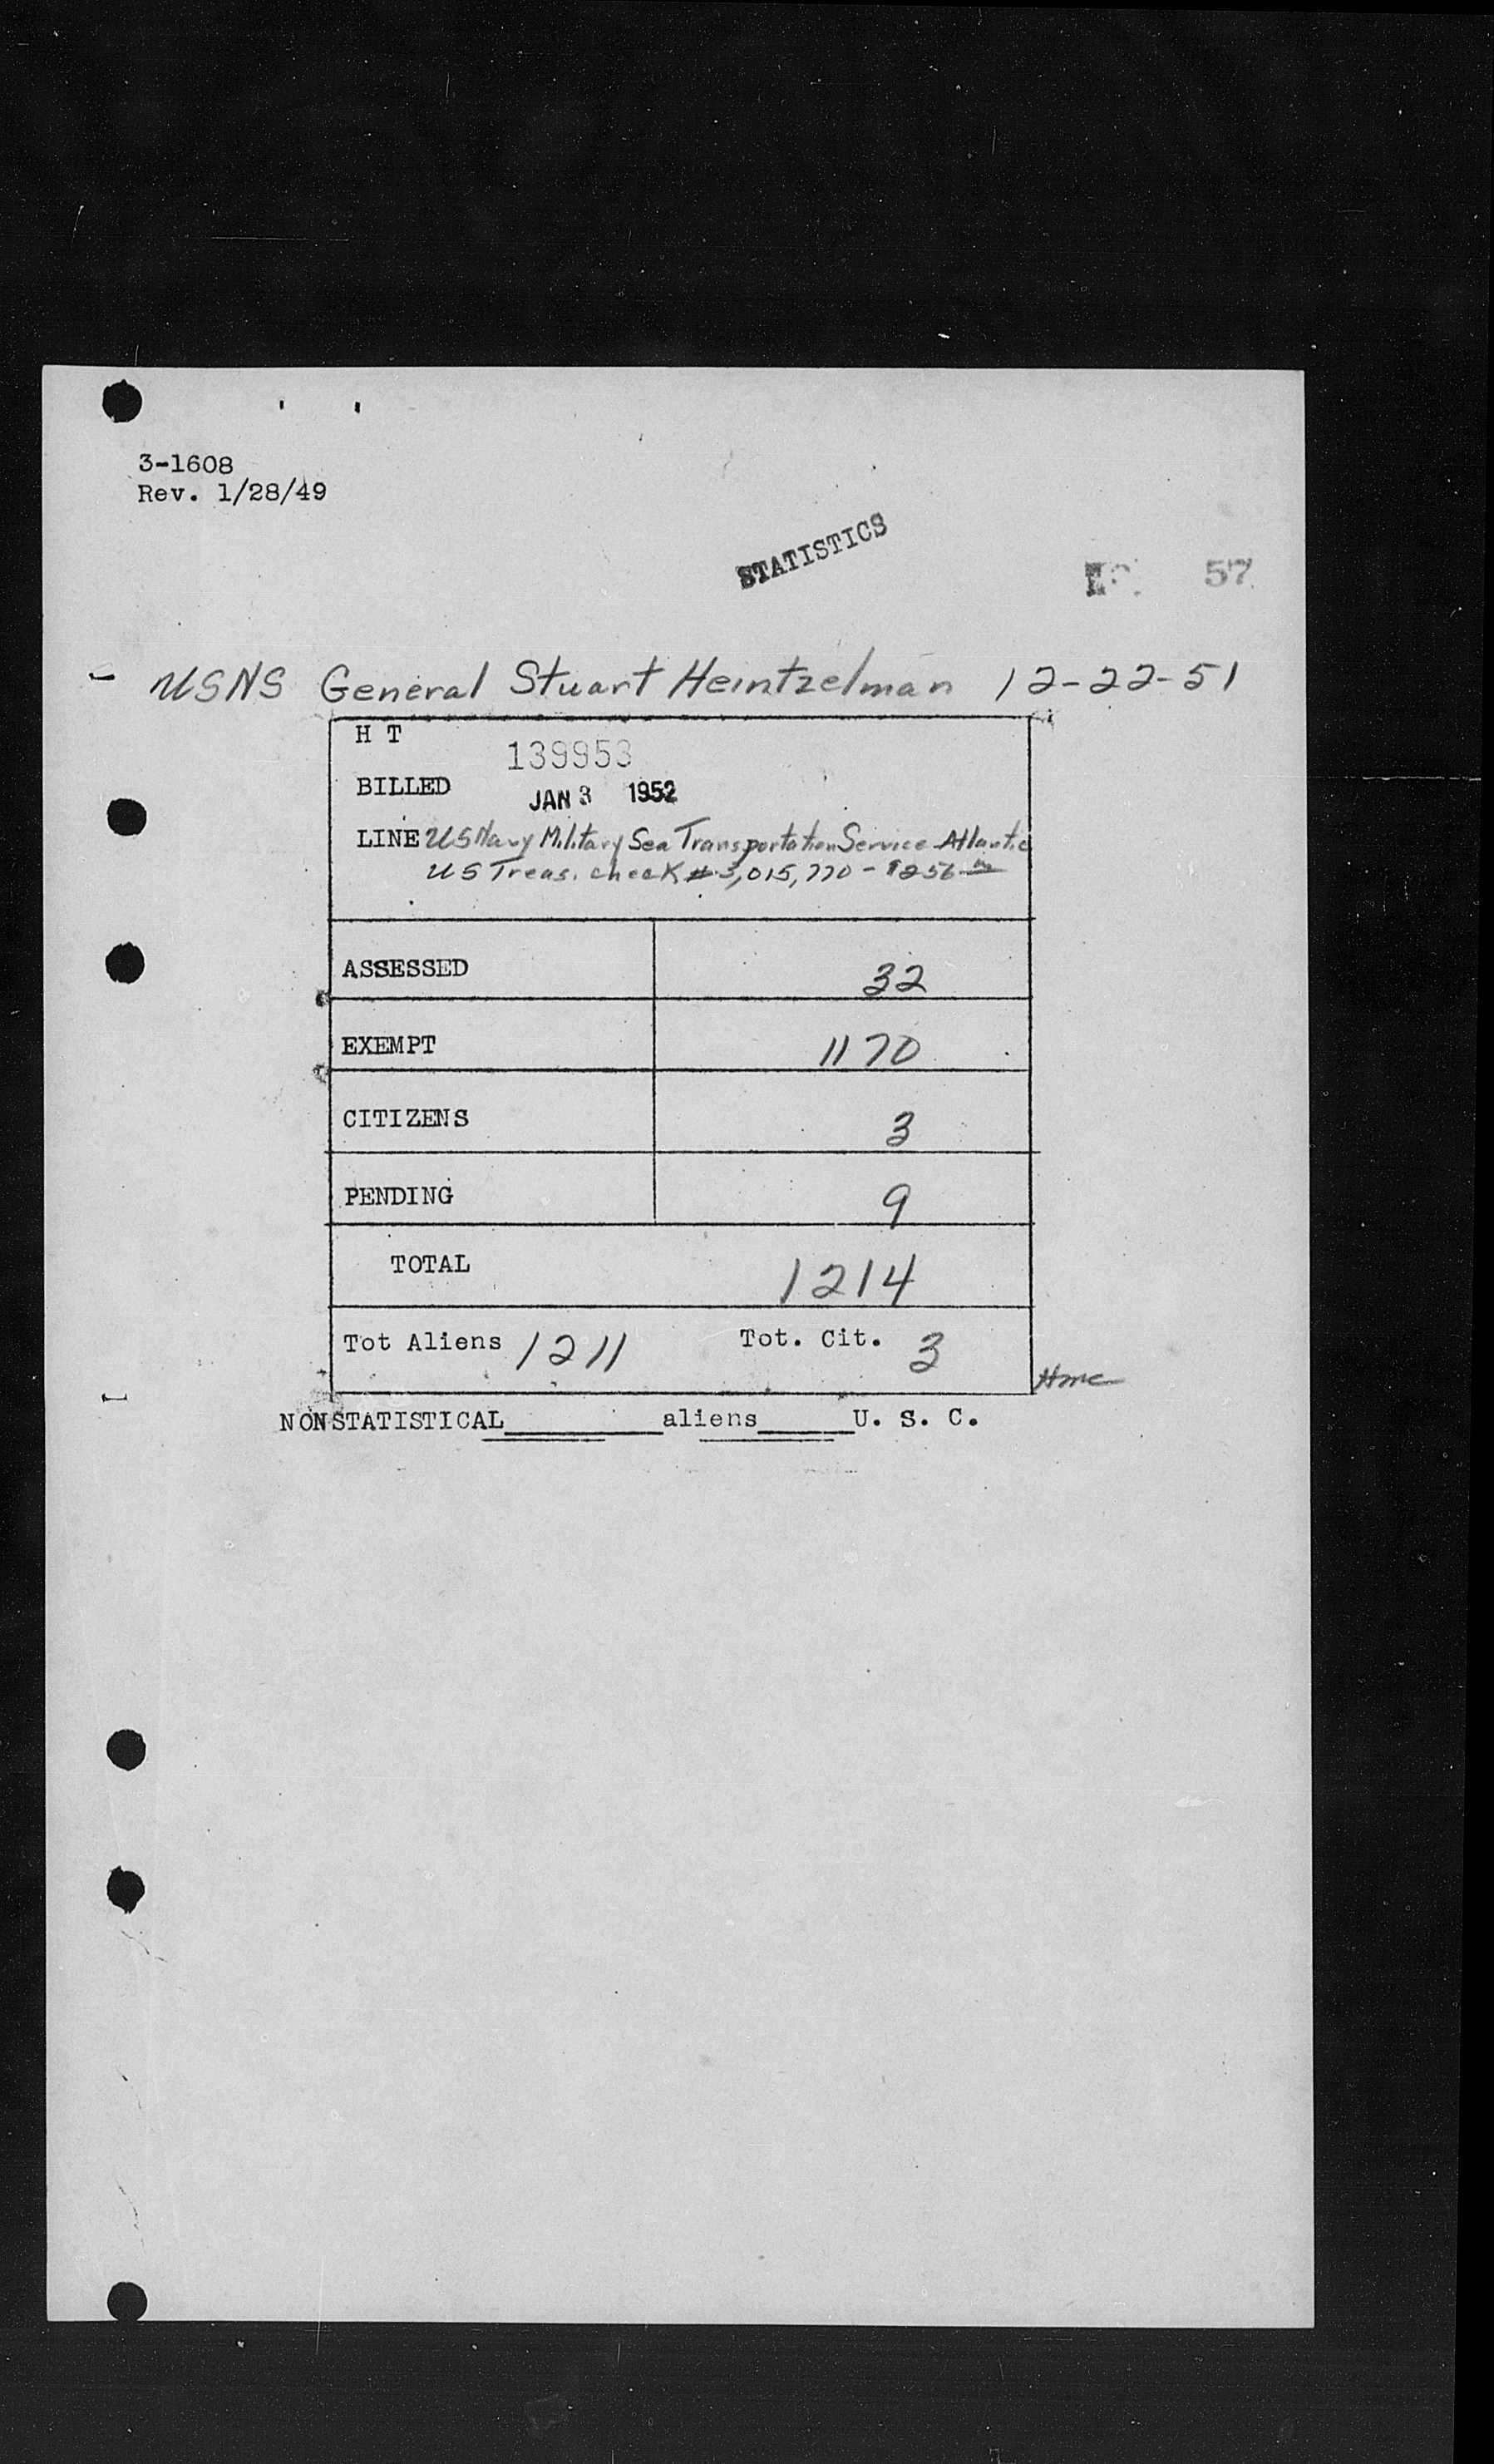 3-1608
Rev. 1/28/49
STATISTICS
57
USNS General Stuart Heintzelman 12-22-51
H T 139953
BILLED JAN 3 1952
LINE US Navy Military Sea Transportation Service Atlantic
US Treas. check # 3,015,770 - $256
ASSESSED 32
EXEMPT 1170
CITIZENS 3
PENDING 9
TOTAL 1214
Tot Aliens 1211 Tot. Cit. 3
NONSTATISTICAL aliens U. S. C.